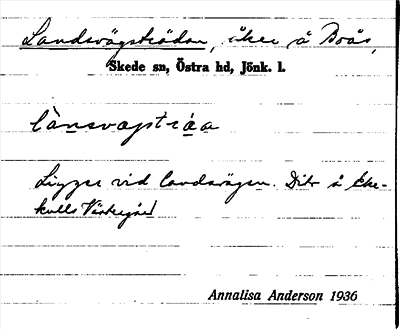 Landsvägsträdan, åker å Boås,
Skede sn, Östra hd, Jönk. l.
Ligger vid landsvägen. Dito å Eke-
kulls Västergård
Annalisa Anderson 1936